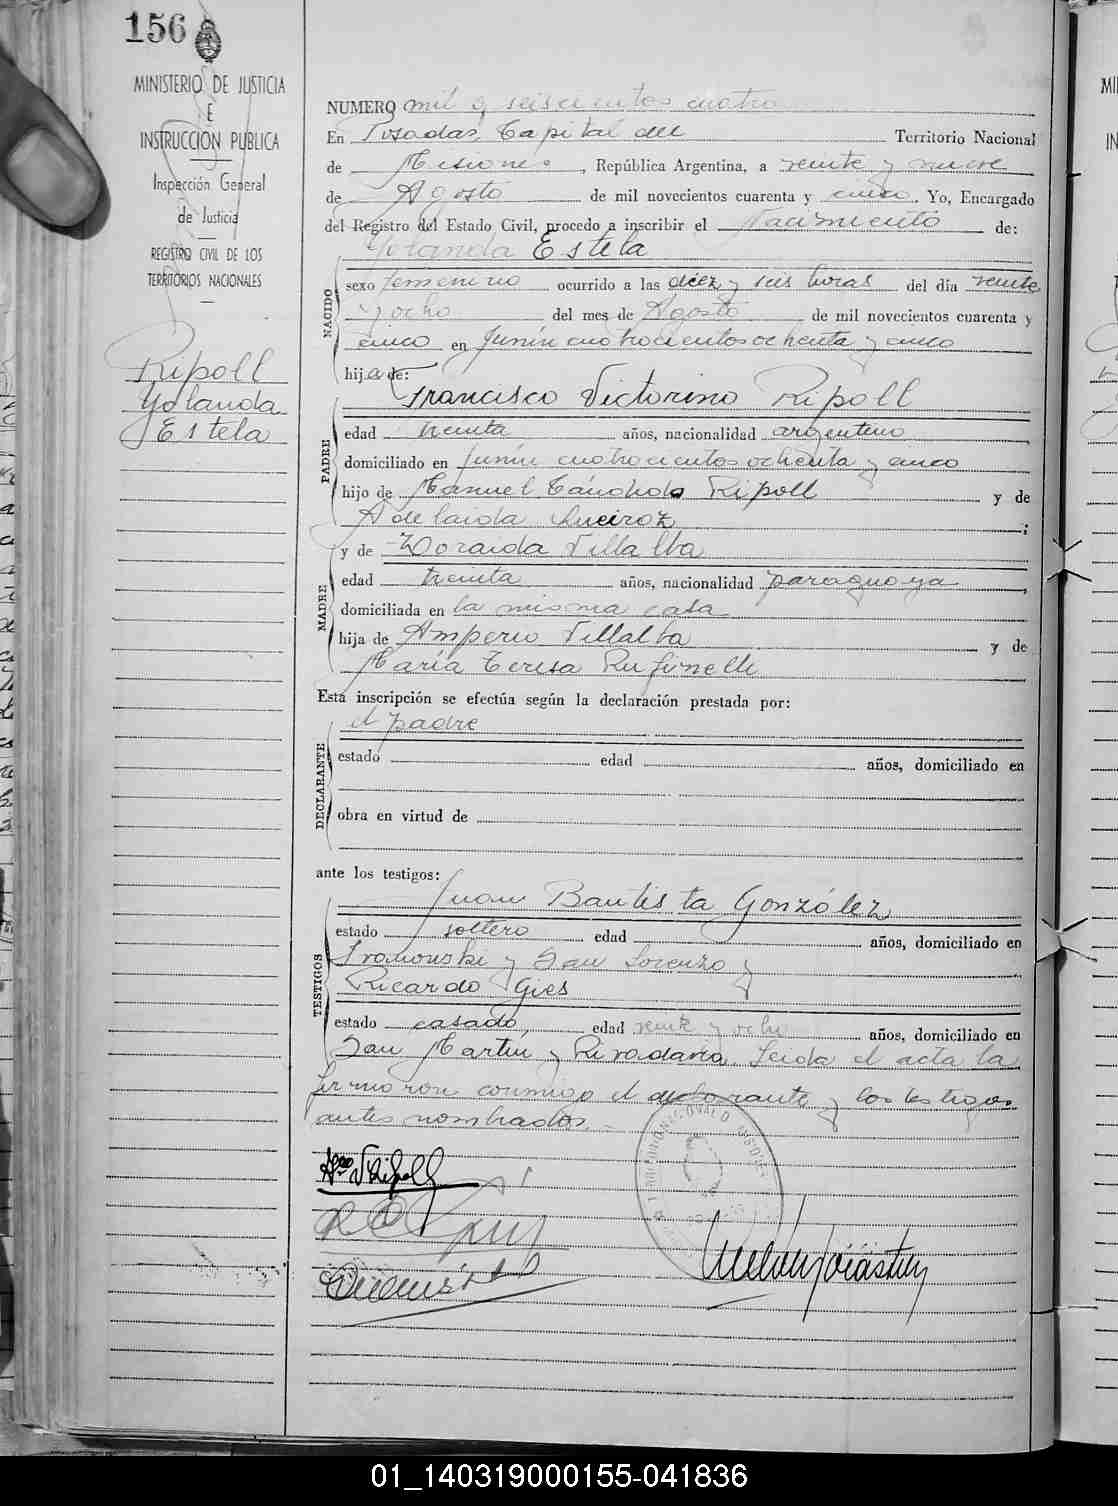 156
MINISTERIO DE JUSTICIA
E
INSTRUCCIÓN PÚBLICA
Inspección General
de Justicia
REGISTRO CIVIL DE LOS
TERRITORIOS NACIONALES
Ripoll
Yolanda
Estela
NUMERO mil seiscientos cuatro
En Posadas, Capital del Territorio Nacional
de Misiones, República Argentina, a veinte y nueve
de Agosto de mil novecientos cuarenta y cinco. Yo, Encargado
del Registro del Estado Civil, procedo a inscribir el Nacimiento de:
Yolanda Estela
NACIDO
sexo femenino ocurrido a las diez y seis horas del día veinte
y ocho del mes de Agosto de mil novecientos cuarenta y
cinco en Junín cuatrocientos ochenta y cinco
hija de:
Francisco Victorino Ripoll
PADRE
edad treinta años, nacionalidad argentino
domiciliado en Junín cuatrocientos ochenta y cinco
hijo de Manuel Cándido Ripoll y de
Adelaida Queiroz ;
y de Zoraida Villalba
MADRE
edad treinta años, nacionalidad paraguaya,
domiciliada en la misma casa
hija de Amperio Villalba y de
María Teresa Rufinelli
Esta inscripción se efectúa según la declaración prestada por:
el padre
DECLARANTE
estado edad años, domiciliado en
obra en virtud de
ante los testigos:
Juan Bautista González
TESTIGOS
estado soltero edad años, domiciliado en
y San Lorenzo y
Ricardo Gies
estado casado, edad veinte y ocho años, domiciliado en
San Martín y Rivadavia. Leida el acta la
firmaron conmigo el declarante y los testigos
antes nombrados.
01_140319000155-041836